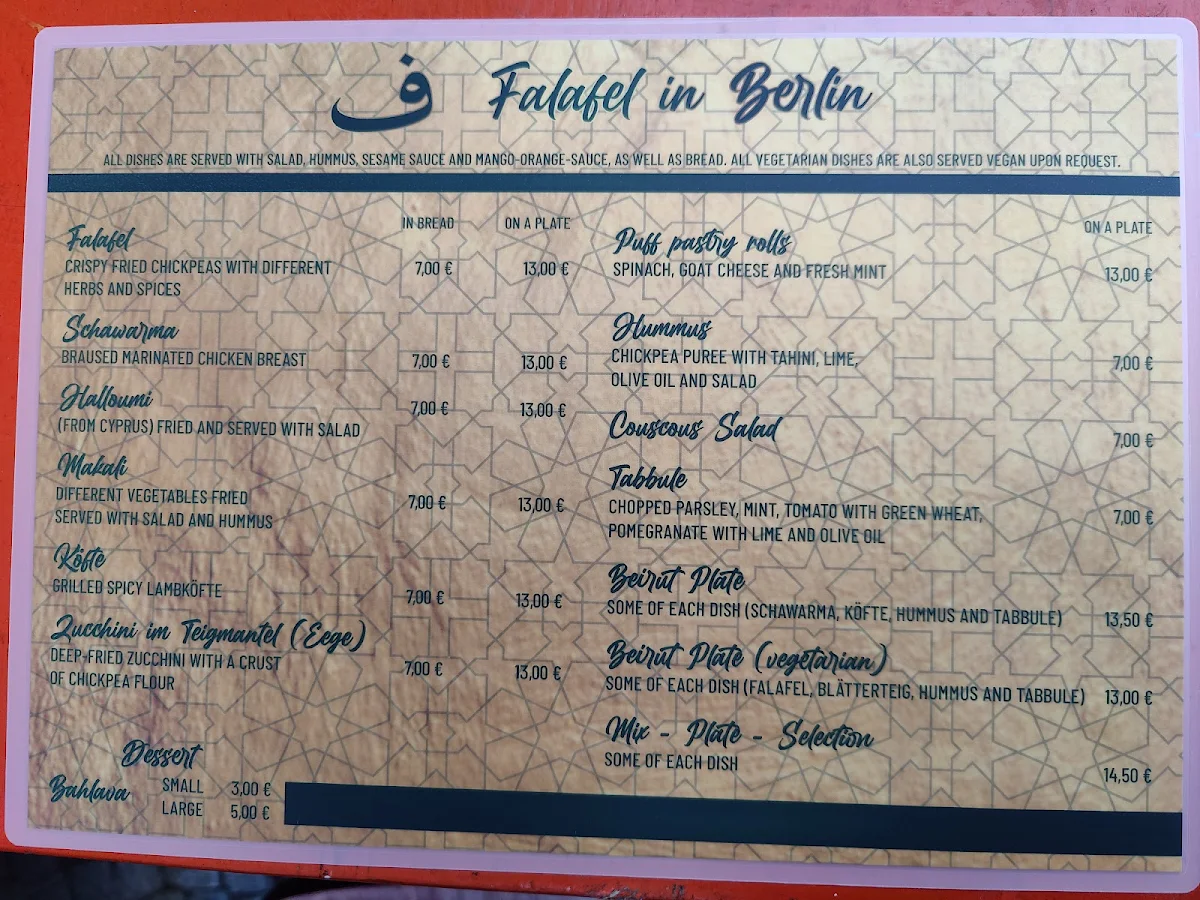 ف Falafel in Berlin
ALL DISHES ARE SERVED WITH SALAD, HUMMUS, SESAME SAUCE AND MANGO-ORANGE-SAUCE, AS WELL AS BREAD. ALL VEGETARIAN DISHES ARE ALSO SERVED VEGAN UPON REQUEST.
IN BREAD ON A PLATE
Falafel
CRISPY FRIED CHICKPEAS WITH DIFFERENT 7,00 € 13,00 €
HERBS AND SPICES
Schawarma
BRAUSED MARINATED CHICKEN BREAST 7,00 € 13,00 €
Halloumi 7,00 € 13,00 €
(FROM CYPRUS) FRIED AND SERVED WITH SALAD
Makali
DIFFERENT VEGETABLES FRIED 7,00 € 13,00 €
SERVED WITH SALAD AND HUMMUS
Köfte
GRILLED SPICY LAMBKÖFTE 7,00 € 13,00 €
Zucchini im Teigmantel (Eege)
DEEP-FRIED ZUCCHINI WITH A CRUST 7,00 € 13,00 €
OF CHICKPEA FLOUR
Dessert
Bahlava SMALL 3,00 €
LARGE 5,00 €
ON A PLATE
Puff pastry rolls
SPINACH, GOAT CHEESE AND FRESH MINT 13,00 €
Hummus
CHICKPEA PUREE WITH TAHINI, LIME, 7,00 €
OLIVE OIL AND SALAD
Couscous Salad 7,00 €
Tabbule
CHOPPED PARSLEY, MINT, TOMATO WITH GREEN WHEAT, 7,00 €
POMEGRANATE WITH LIME AND OLIVE OIL
Beirut Plate
SOME OF EACH DISH (SCHAWARMA, KÖFTE, HUMMUS AND TABBULE) 13,50 €
Beirut Plate (vegetarian)
SOME OF EACH DISH (FALAFEL, BLÄTTERTEIG, HUMMUS AND TABBULE) 13,00 €
Mix - Plate - Selection
SOME OF EACH DISH 14,50 €